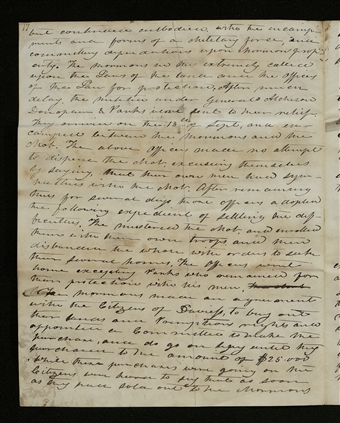 but continued embodied, with the encamp
ments and forms of a military force and
committing depredations upon Mormon prop
erty. The Mormons in the extremity called
upon the Laws of the land and the officers
of the Law for protection, After much
delay, the militia under Generals Atchison
Doniphan & Parks were sent to their relief.
They arrived on the 13th of Sept. and en
camped between the Mormons and the
Mob. The above officers made no attempt
to disperse the Mob, excusing themselves
by saying, that their own men had sym-
pathies with the Mob. After remaining
thus for several days those officers adopted
the following expedient of settling the dif-
ficulties. They mustered the Mob, and enrolled
them with their own troops and then
disbanded the whole with orders to seek
their several homes. The officers went
home excepting Parks who remained for
their protection with his men.
The Mormons made an agreement
with the Citizens of Daviess, to buy out
their lands and Preemption rights and
appointed a Committee to make the
purchase, and do go on buying until they
purchased to the amount of $25.000
While these purchases were going on the
Citizens were heard to say that as soon
as they had sold out to the Mormons